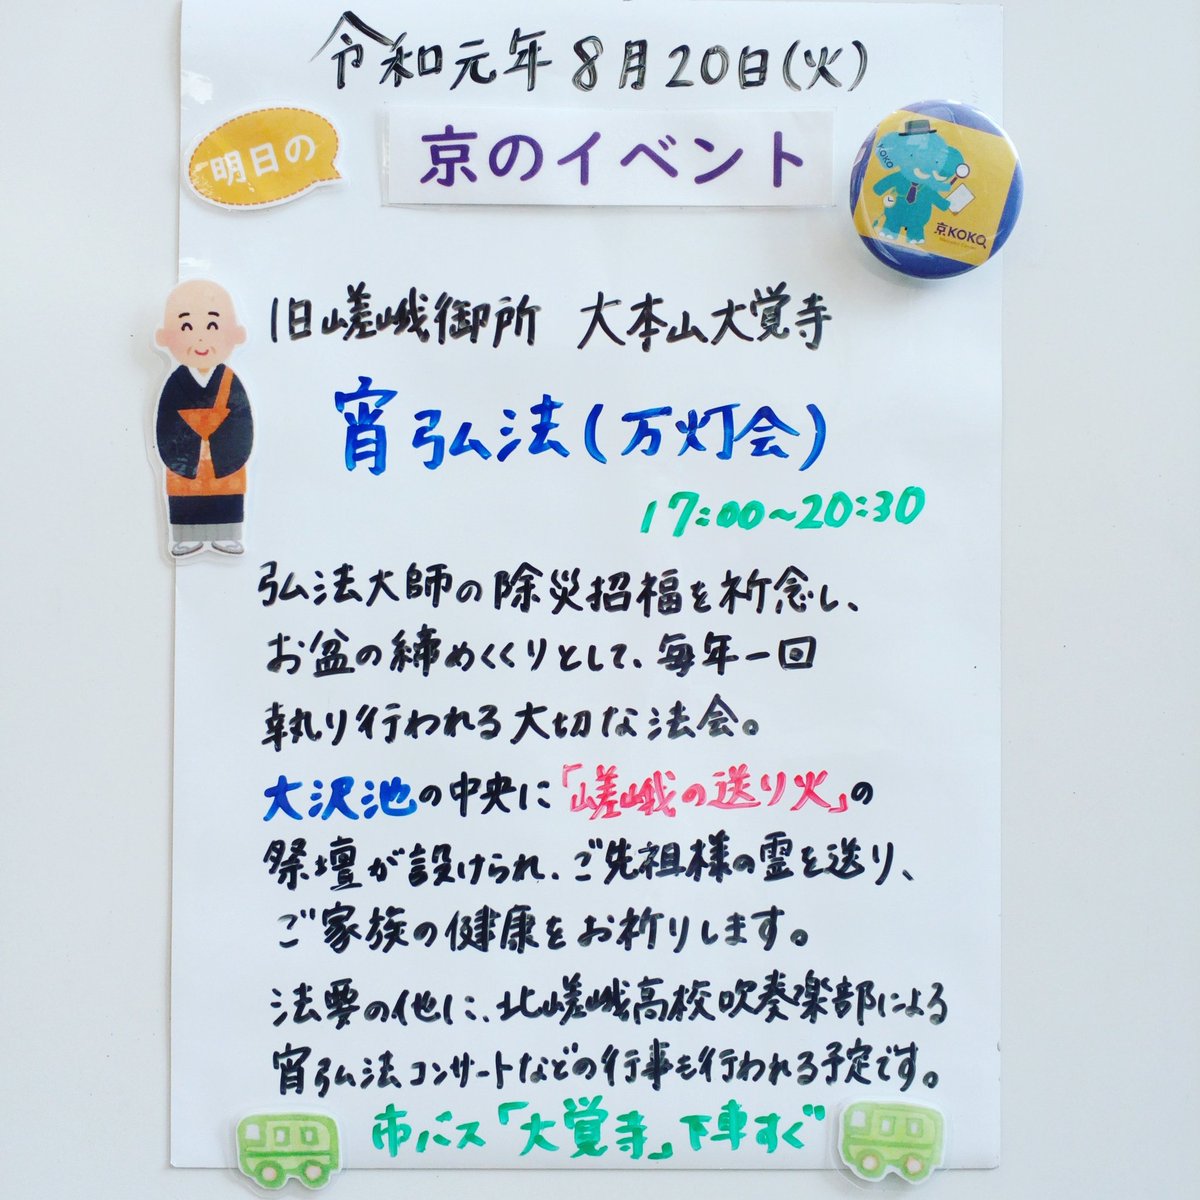 令和元年8月20日(火)
明日の
京のイベント
KOKO
京KOKO
旧嵯峨御所 大本山大覚寺
宵弘法(万灯会)
17:00~20:30
弘法大師の除災招福を祈念し、
お盆の締めくくりとして、毎年一回
執り行われる大切な法会。
大沢池の中央に「嵯峨の送り火」の
祭壇が設けられ、ご先祖様の霊を送り、
ご家族の健康をお祈りします。
法要の他に、北嵯峨高校吹奏楽部による
宵弘法コンサートなどの行事も行われる予定です。
市バス「大覚寺」下車すぐ